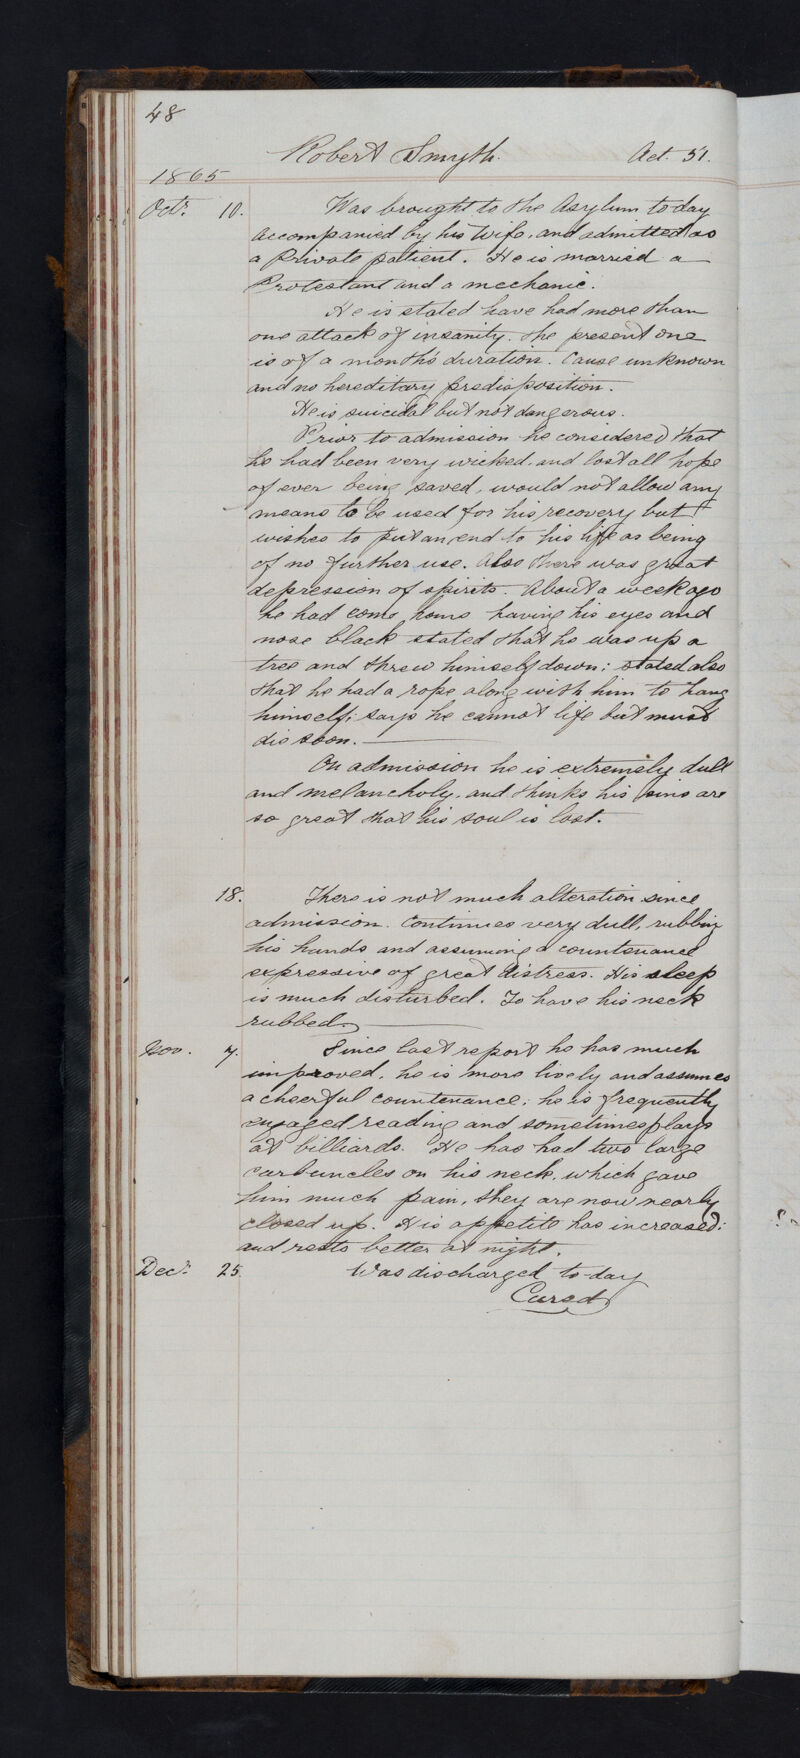 48
Robert Smyth. Aet. 51.
1865
Octr. 10. Was brought to the Asylum to day
accompanied by his Wife, and admitted as
a Private patient. He is married a
Protestant and a mechanic.
He is stated have had more than
one attack of insanity. The present one
is of a month's duration. Cause unknown
and no hereditary predisposition.
He is suicidal but not dangerous.
Prior to admission he considered that
he had been very wicked, and lost all hope
of ever being saved, would not allow any
means to be used for his recovery but
wishes to put an end to his life as being
of no further use. Also there was great
depression of spirits. About a week ago
he had come home having his eyes and
nose black stated that he was up a
tree and threw himself down; stated also
that he had a rope along with him to hang
himself; says he cannot life but must
die soon.
On admission he is extremely dull
and melancholy, and thinks his sins are
so great that his soul is lost.
18. There is not much alteration since
admission. Continues very dull, rubbing
his hands and assuming a countenance
expressive of great distress. His sleep
is much disturbed. To have his neck
rubbed.
Nov. 7. Since last report he has much
improved, he is more lively and assumes
a cheerful countenance; he is frequently
engaged reading and sometimes plays
at billiards. He has had two large
carbuncles on his neck, which gave
him much pain, they are now nearly
closed up. His appetite has increased;
and rests better at night.
Decr. 25. Was discharged to-day
Cured